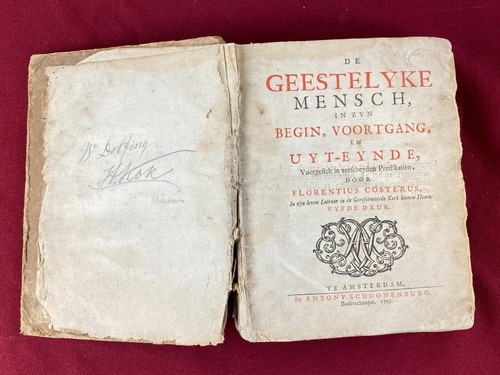 Wd Dolfing
H Kok
DE
GEESTELYKE
MENSCH,
IN ZYN
BEGIN, VOORTGANG,
EN
UYT-EYNDE,
Voorgestelt in verscheyden Predikatien,
DOOR
FLORENTIUS COSTERUS,
In zyn leven Leeraar in de Gereformeerde Kerk binnen Hoorn.
VYFDE DRUK.
TE AMSTERDAM,
By ANTONY SCHOONENBURG,
Boekverkooper,